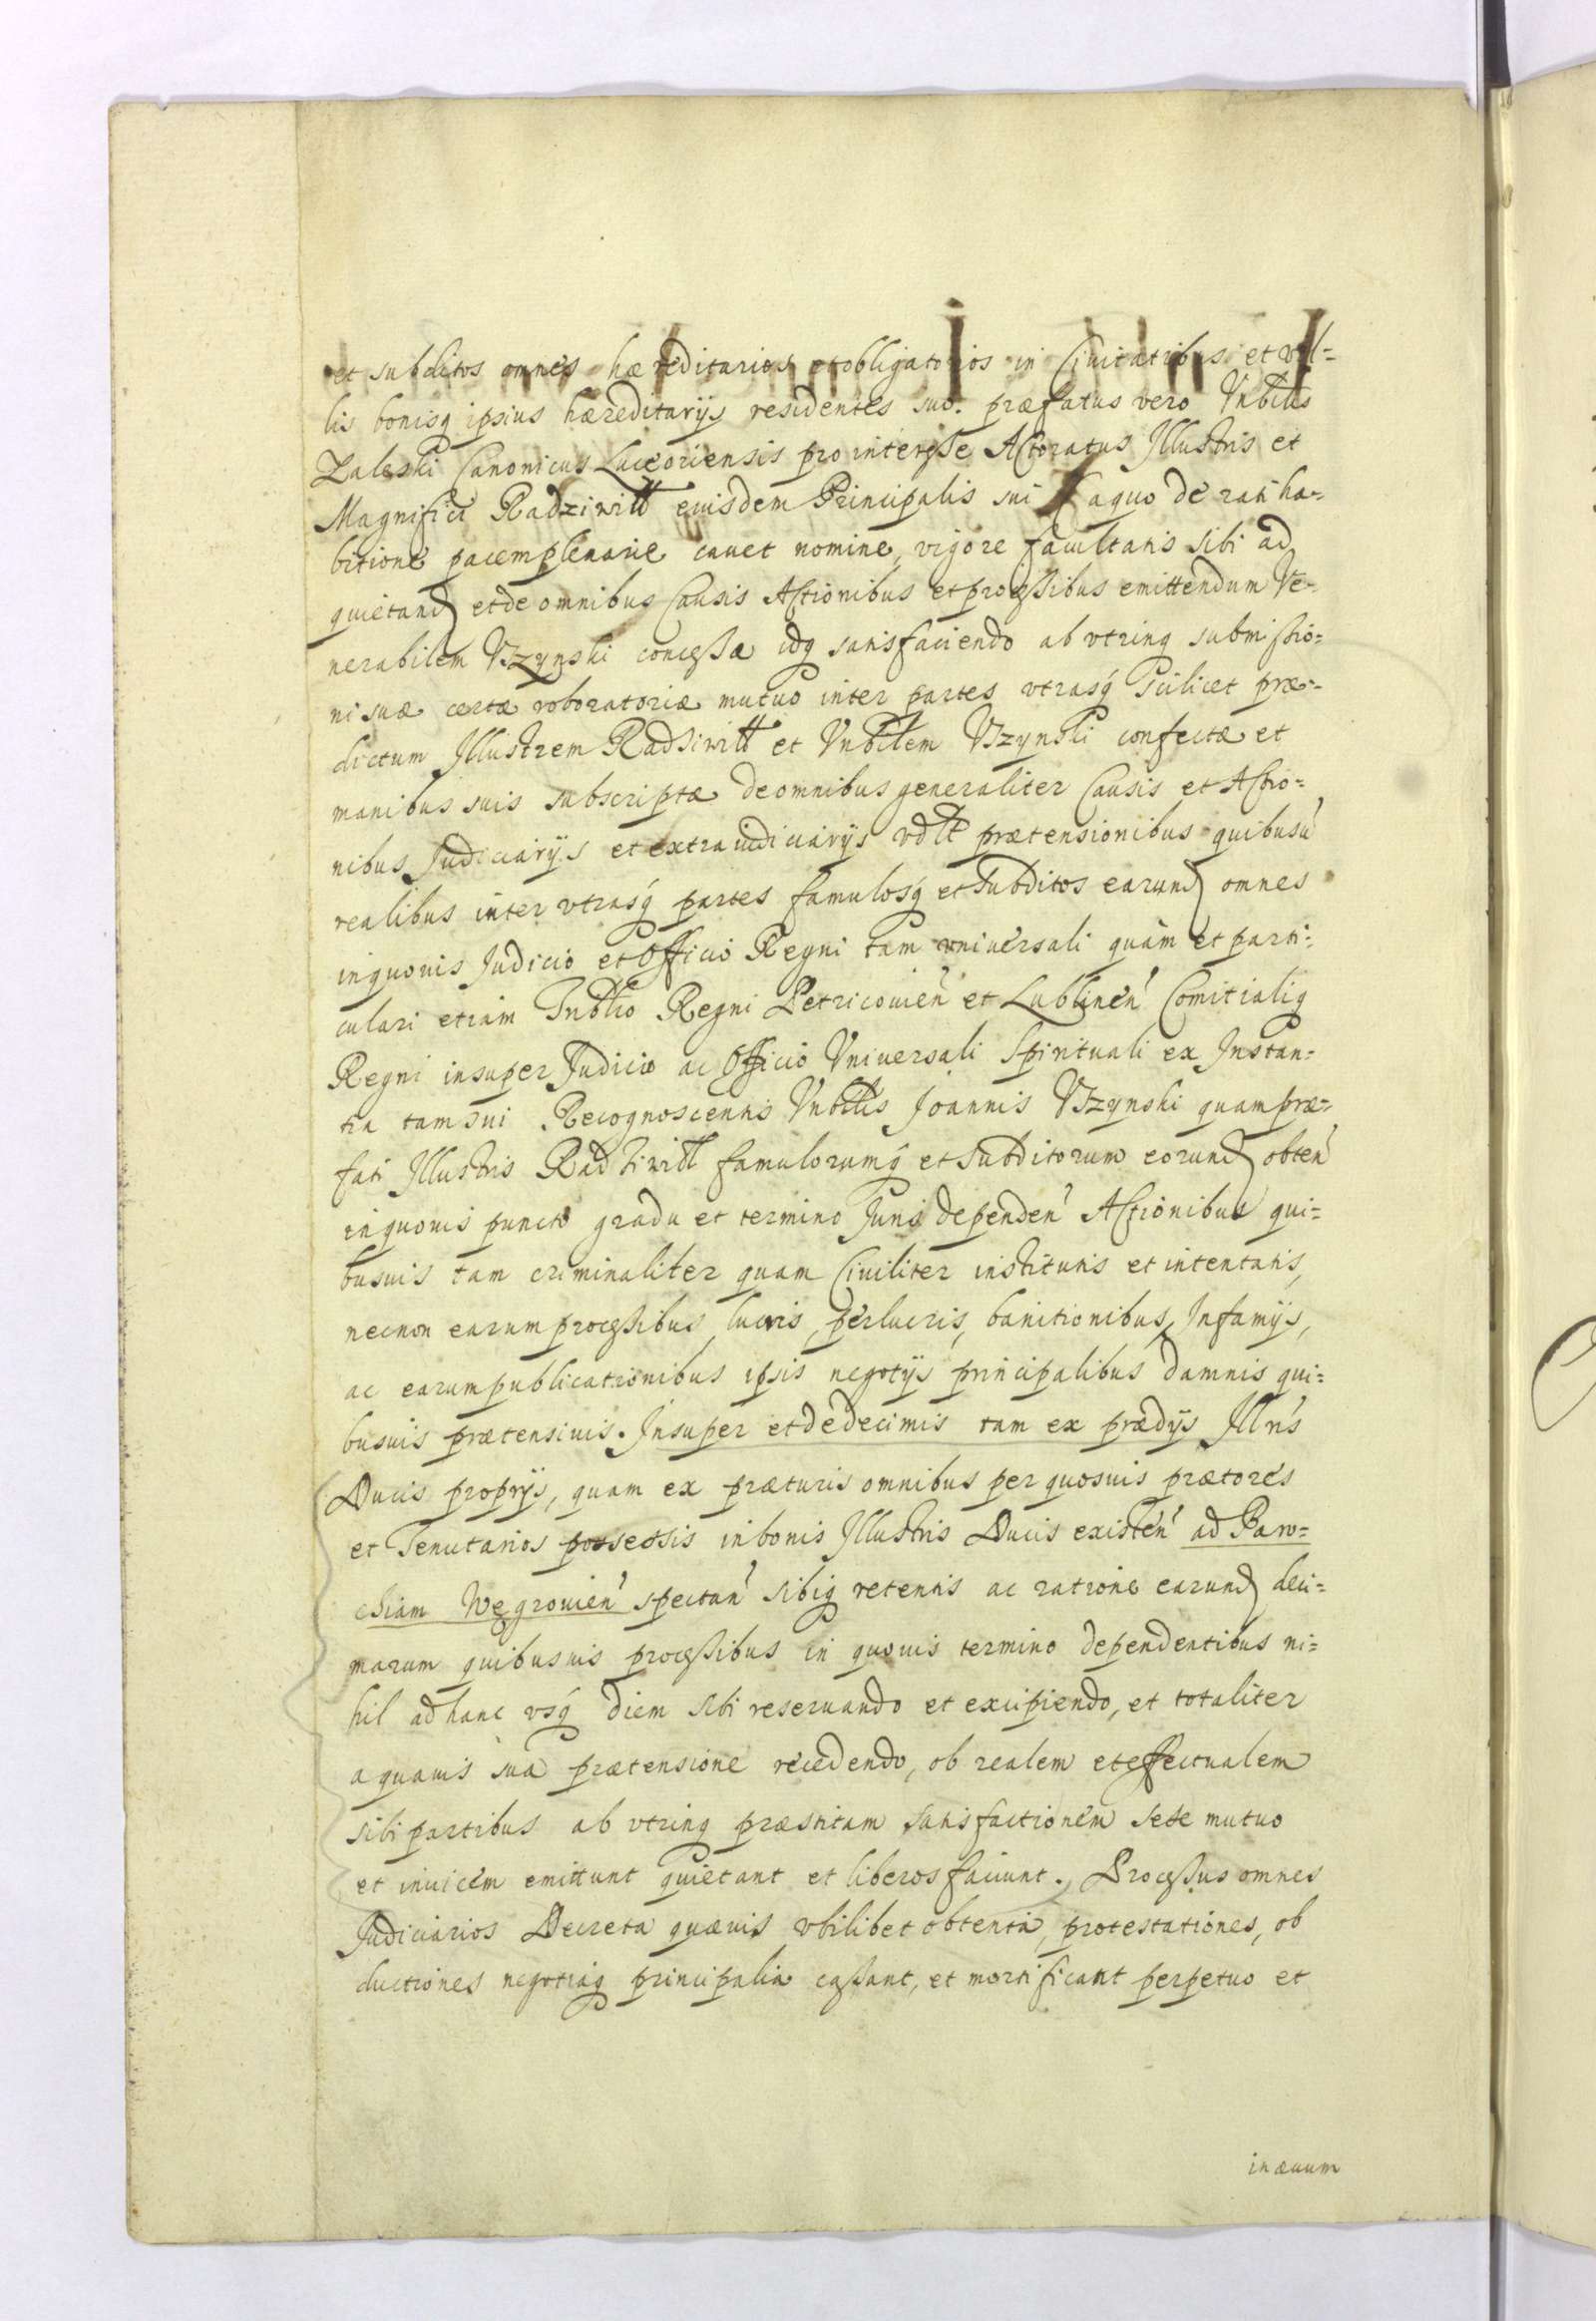 et subditos omnes hæreditarios et obligatorios in Civitatibus et vil=
lis bonisq ipsius hæreditarijs residentes suo. præfatus vero Vnbilis
Zaleski Canonicus Luceoriensis pro interesse Actoratus Illustris et
Magnifici Radziwiłł eiusdem Principalis sui a quo de rati ha-
bitione pacem plenarie cauet nomine, vigore facultatis sibi ad
quietand et de omnibus Causis Actionibus et processibus emittendum Ve-
nerabilem Vszynski concessæ idq satisfaciendo ab vtrinq submissio=
ni suæ certæ roboratoriæ mutuo inter partes vtrasq scilicet præ=
dictum Illustrem Radziwiłł et Vnbilem Vszynski confectæ et
manibus suis subscriptæ de omnibus generaliter Causis et Actio=
nibus Judiciarijs et extraiudiciarijs prætensionibus quibusu
realibus inter vtrasq partes famulosq et subditos earund omnes
in quouis Judicio et Officio Regni tam vniuersali quàm et parti=
culari etiam Tribunlio Regni Petricouien et Lublinen Comitialiq
Regni insuper Judicio ac Officio Vniuersali Spirituali ex Instan=
tia tam sui Recognoscentis Vnbilis Joannis Vszynski quam præ=
fati Illustris Radziwiłł famulorumq et subditorum eorund obten
in quouis puncto gradu et termino Juris dependen Actionibus qui=
busuis tam criminaliter quam Ciuiliter institutis et intentatis,
necnon earum processibus lucris, perlucris, banitionibus, Infamijs,
ac earum publicationibus ipsis negotijs principalibus damnis qui=
busuis prætensiuis. Insuper et de decimis tam ex prædijs Illris
Ducis proprijs, quam ex præturis omnibus per quosuis prætores
et Tenutarios possessis in bonis Illustris Ducis existen ad Paro=
chiam Wegrouien spectan sibiq retentis ac ratione earund deci=
marum quibusuis processibus in quouis termino dependentibus ni=
hil ad hanc vsq diem sibi reseruando et excipiendo, et totaliter
a quauis sua prætensione recedendo, ob realem et effectualem
sibi partibus ab vtrinq præstitam satisfactionem sese mutuo
et inuicem emittunt quietant et liberos faciunt. Processus omnes
Judiciarios Decreta quæuis vbilibet obtenta, protestationes, ob
ductiones negotiaq principalia cassant, et mortificant perpetuo et
in æuum